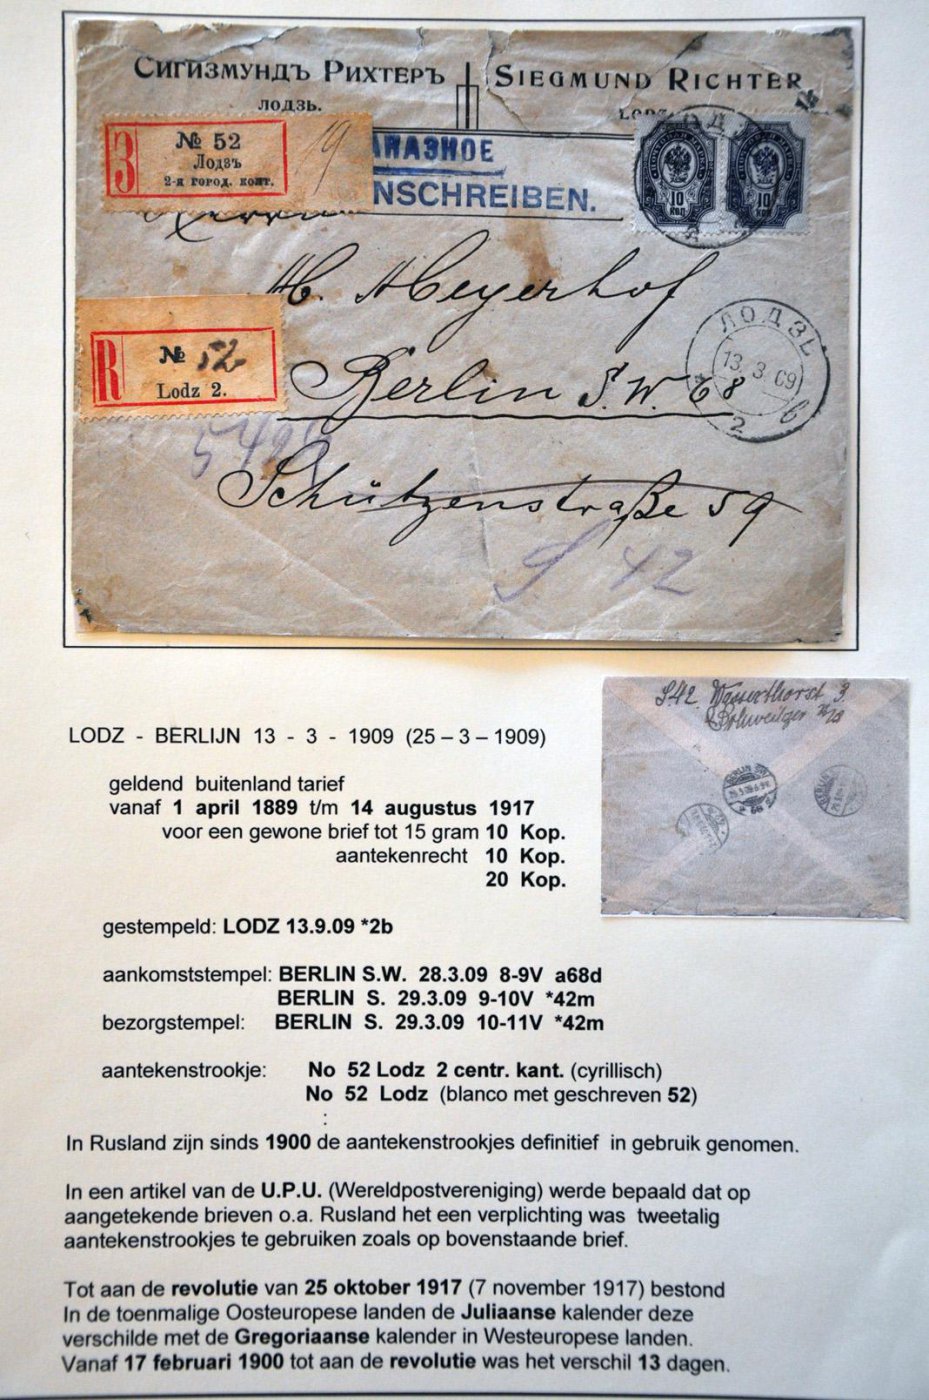 Сигизмундъ Рихтеръ
лодзь.
Siegmund Richter
З
№ 52
Лодзъ
2-я город. конт.
19
АКАЗНОЕ
NSCHREIBEN.
10 10
Коп
ЛОДЗЬ
13 3 09
2 в
H. Meyerhof
R
№ 52
Lodz 2.
Berlin S.W. 68
Schützenstraße 59
S 42
S.42.
LODZ - BERLIJN 13 - 3 - 1909 (25 – 3 – 1909)
geldend buitenland tarief
vanaf 1 april 1889 t/m 14 augustus 1917
voor een gewone brief tot 15 gram 10 Kop.
aantekenrecht 10 Kop.
20 Kop.
gestempeld: LODZ 13.9.09 *2b
aankomststempel: BERLIN S.W. 28.3.09 8-9V a68d
BERLIN S. 29.3.09 9-10V *42m
bezorgstempel: BERLIN S. 29.3.09 10-11V *42m
aantekenstrookje: No 52 Lodz 2 centr. kant. (cyrillisch)
No 52 Lodz (blanco met geschreven 52)
:
In Rusland zijn sinds 1900 de aantekenstrookjes definitief in gebruik genomen.
In een artikel van de U.P.U. (Wereldpostvereniging) werde bepaald dat op
aangetekende brieven o.a. Rusland het een verplichting was tweetalig
aantekenstrookjes te gebruiken zoals op bovenstaande brief.
Tot aan de revolutie van 25 oktober 1917 (7 november 1917) bestond
In de toenmalige Oosteuropese landen de Juliaanse kalender deze
verschilde met de Gregoriaanse kalender in Westeuropese landen.
Vanaf 17 februari 1900 tot aan de revolutie was het verschil 13 dagen.